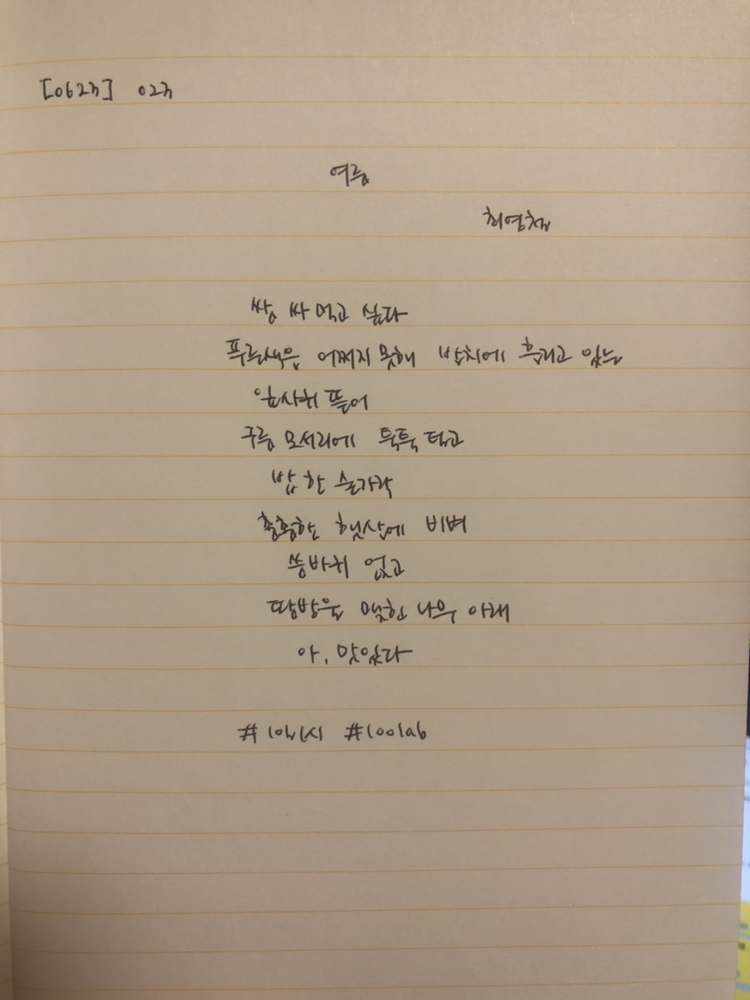 [0623] 023
여름
최영채
쌈 싸 먹고 싶다
푸르름을 어쩌지 못해 발치에 흘리고 있는
잎사귀 뜯어
구름 모서리에 툭툭 털고
밥 한 숟가락
촘촘한 햇살에 비벼
씀바귀 얹고
땀방울 맺힌 나무 아래
아, 맛있다
#1일1시 #100lab